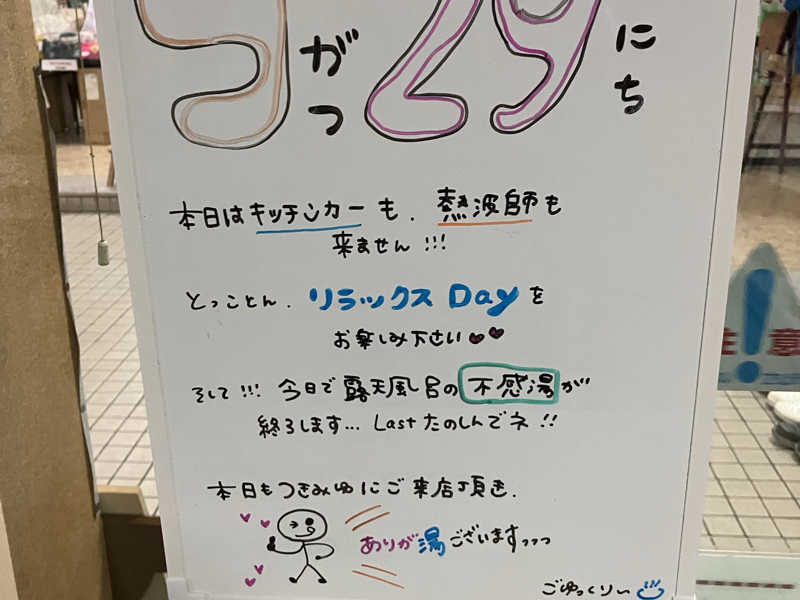 9がつ29にち
本日はキッチンカーも、熱波師も
来ません!!!
とっことん、リラックスDayを
お楽しみ下さい
そして!!!今日で露天風呂の不感湯が
終了します…Lastたのしんでネ!!
本日もつきみゆにご来店頂き、
ありが湯ございますっっっ
ごゆっくりぃ
注意